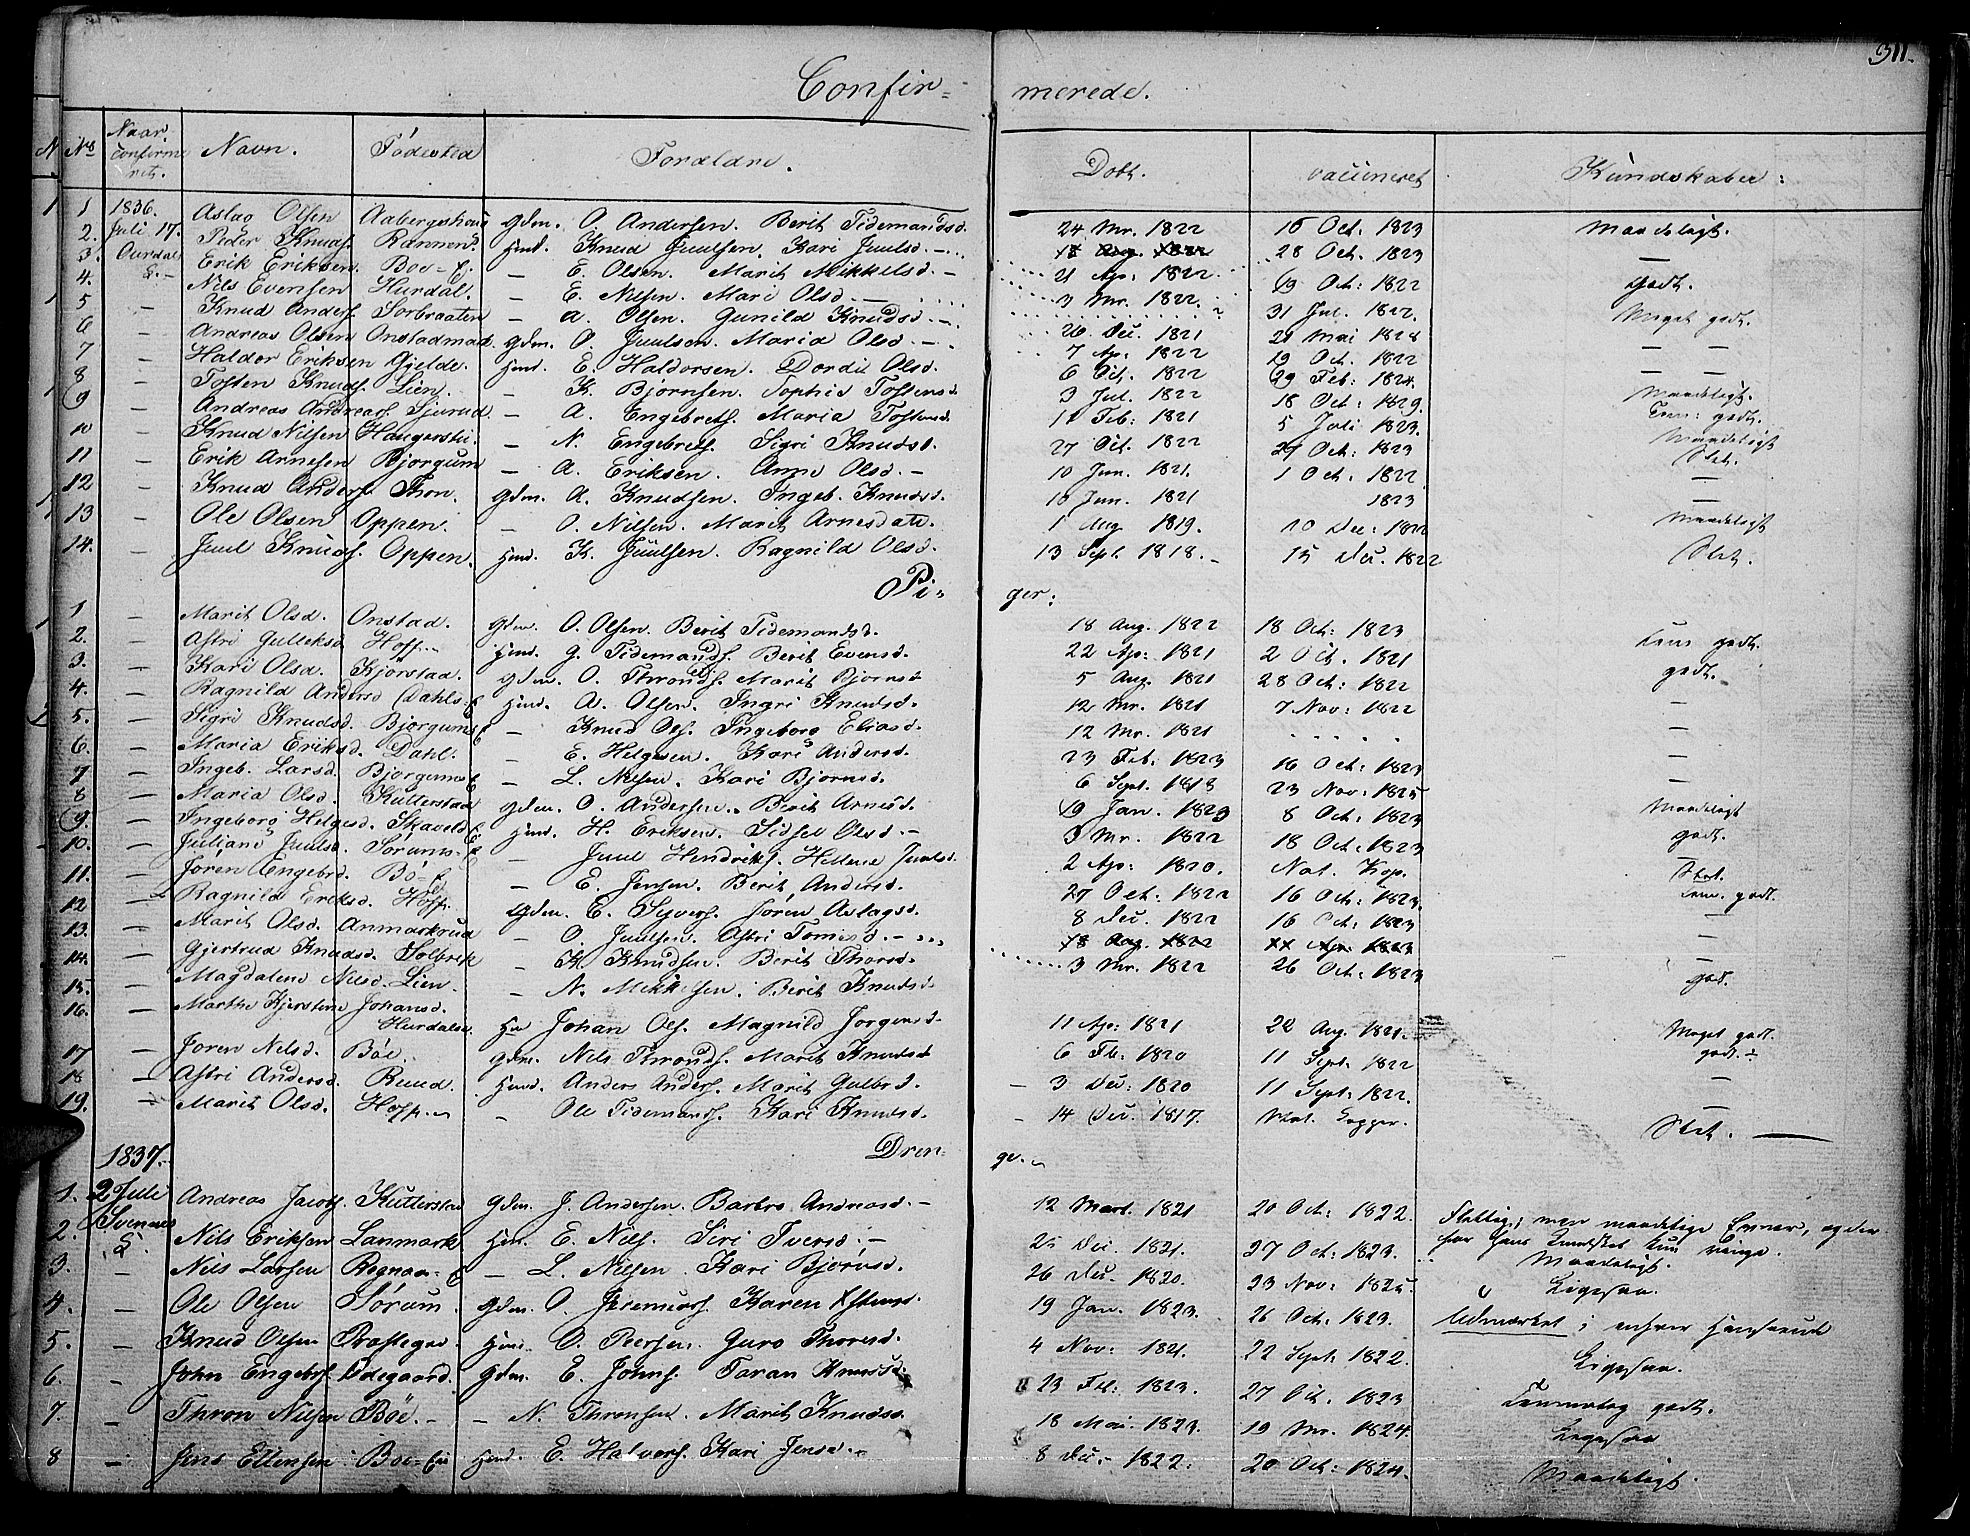 311.
Confir= merede.
No Naar confirmeret. Navn. Födested Forældre. Döbt. vaccineret Kundskaber:
1 1836. Aslag Olsen Aabergshaug Gdm. O. Andersen. Berit Tidemandsd. 24 Mr. 1822 16 Oct. 1823 Maadeligt.
2. Juli 17. Peder Knuds. Rannen Huusm. Knud Juulsen. Kari Juulsd. 18 Aug. 1822 28 Oct. 1823 —
3. Aurdal Erik Eriksen. Böe-E. — E. Olsen. Marit Mikkelsd. — 21 Apr: 1822 19 Oct: 1822 godt.
4. Nils Evensen Hurdal. — E. Nilsen. Mari Olsd. 3 Mr. 1822. 31 Jul. 1822. Meget godt.
5 — Knud Anders. Sorbraaten — A. Olsen. Gunild Knudsd. 26 Dec. 1821 21 Mai 1828
6 — Andreas Olsen Onstadmad. Gdm. O. Juulsen. Maria Olsd. — 7 Apr: 1822 19 Oct. 1822 — —
7 — Haldor Eriksen Gjelde. Hmd. E. Haldorsen. Dordi Olsd. 6 Oct. 1822 29 Feb: 1824. — —
8 — Tosten Knuds. Lien. — K. Bjørnsen. Sophie Tostensd 3 Jul. 1822 18 Oct: 1829. Maadeligt.
9 — Andreas Andreas. Sjurud — A. Engebrets. Maria Tostensd. 11 Feb: 1821 5 Juli 1823. Tem: godt.
10 — Knud Nilsen Haugerstu. — N. Engebrets. Sigri Knudsd. 27 Oct. 1822 27 Oct: 1823 Maadeligt
11 — Erik Arnesen Bjorgum — A. Eriksen. Anne Olsd. — 10 Jun. 1821. 1 Oct. 1822. Slet.
12 — Knud Anders. Thon. Gdm. A. Knudsen. Ingeb. Knudsd. 10 Jun. 1821 1823 —
13 — Ole Olsen Oppen. — O. Nilsen. Marit Arnesdatt. 1 Aug 1819. 10 Dec: 1822 Maadeligt
14. — Juul Knuds. Oppen. Hmd. K. Juulsen. Ragnild Olsd. 13 Sept. 1818. 15 Dec. 1822 Slet.
Pi= ger:
1 — Marit Olsd. Onstad. Gdm. O. Olsen. Berit Tidemandsd. 18 Aug. 1822 18 Oct: 1823 Tem godt.
2. — Astri Gulleksd Hoff. Hmd. G. Tidemands. Berit Evensd. 22 Apr: 1821 2 Oct. 1821 godt.
3. — Kari Olsd. Kjørstad. Gdm. O. Thronds. Marit Bjørnsd 5 Aug. 1821 28 Oct: 1822
4. — Ragnild Andersd Dahls-E Hmd. A. Olsen. Ingri Knudsd. 12 Mr. 1821 7 Nov: 1822 —
5. — Sigri Knudsd. Bjorgums E — Knud Ols. Ingeborg Eliasd. 12 Mr. 1821 . . . . . —
6. — Maria Eriksd. Dahl. — E. Helgesen. Kari Andersd. 23 Feb: 1823 16 Oct: 1823 —
7 — Ingeb. Larsd. Bjørgums E — L. Nilsen. Kari Bjørnsd. 6 Sept. 1818 23 Nov: 1825 —
8 — Maria Olsd. Kutterstad Gdm. O. Andersen. Berit Arnesd. 19 Jan. 1823 8 Oct: 1823 Maadeligt
9. — Ingeborg Helgesd. Skaveld E Hmd. H. Eriksen. Sidsel Olsd. — 3 Mr. 1822 18 Oct: 1823 godt.
10. — Juliane Juulsd. Sorums-E — Juul Hendriks. Hellene Juulsd. 2 Apr: 1820. Nat. Kop. Slet.
11. — Jøren Engebrd. Bö-E — E. Jensen. Berit Andersd. 27 Oct: 1822 16 Oct: 1823. Tem. godt.
12 — Ragnild Eriksd. Hoff. Gdm. E. Syvers. Jøren Aslagsd. 8 Dec: 1822 16 Oct: 1823 —
13. — Marit Olsd. Anmarkrud — O. Juulsen. Astri Tomesd. 18 Aug. 1822 Apr. 1823 —
14. — Gjertrud Knudsd. Solbrek — K. Knudsen. Berit Thorsd. 3 Mr. 1822 26 Oct: 1823 godt.
15. — Magdalene Nilsd. Lien. — N. Mikkelsen. Berit Knudsd
16. — Marthe Kjerstine Johansd.
Hurdalse. Johan Ols. Magnild Jorgensd. 11 Apr: 1821 22 Aug. 1821. Meget godt.
17 — Joren Nilsd. Böe. Gdm. Nils Thronds. Marit Knudsd 6 Fb: 1820 11 Sept. 1822 godt.
18 — Astri Andersd. Ruud. Hmd. Anders Anders. Marit Gulbrd. 3 Dec: 1820 11 Sept: 1822. —
19. — Marit Olsd. Hoff. — Ole Tidemands. Kari Knudsd. 14 Dec. 1817. Nat. Kopper. Slet.
1837. Dren= ge.
1. 2 Juli Andreas Jacobs. Kutterstad Gdm. J. Andersen. Barbro Andreasd. — 12 Mart. 1821 20 Oct: 1822. Flittig, men maadelige Evner, og derfor hans Kundskab kun ringe.
2. Svennes Nils Eriksen Lanmark Hm. E. Nils. Siri Iversd. — 25 Dec. 1821. 27 Oct: 1823. Maadeligt.
3. — Nils Larsen Rognaas-E — L. Nilsen. Kari Bjørnsd. 26 Dec. 1820. 23 Nov: 1825. Ligesaa.
4. — Ole Olsen Sørum. Gdm. O. Jeremias. Karen 19 Jan. 1823. 26 Oct: 1823. Udmærket i enhver Henseende
5. — Knud Olsen Præstegrd. Hmd. O. Peersen. Guro Thoresd. 4 Nov: 1821. 22 Sept: 1822. Ligesaa.
6. — John Engebrs. Ødegaard. Gdm. E. Johns. Taran Knudsd. 23 Feb: 1823. 27 Oct. 1823 Temmelig godt.
7. — Thron Nilsen Böe. — — N. Thronsen. Marit Knudsd. 18 Mai. 1823. 19 Mr. 1824. Ligesaa
8 — Jens Ellensen Böe-Eie Hmd. E. Halvors. Kari Jensd. 8 Dec. 1822. 20 Oct: 1824. Maadeligt.